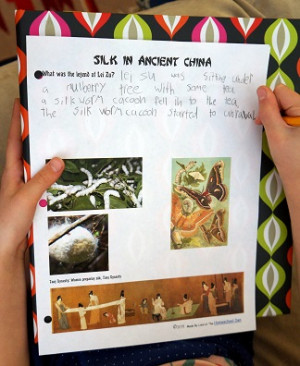 SILK IN ANCIENT CHINA
What was the legend of Lei Zu? lei su was sitting under
a mulberry tree with some tea
a silk worm cacoon fell in to the tea.
The silk worm cacoon started to unravel
Tang Dynasty